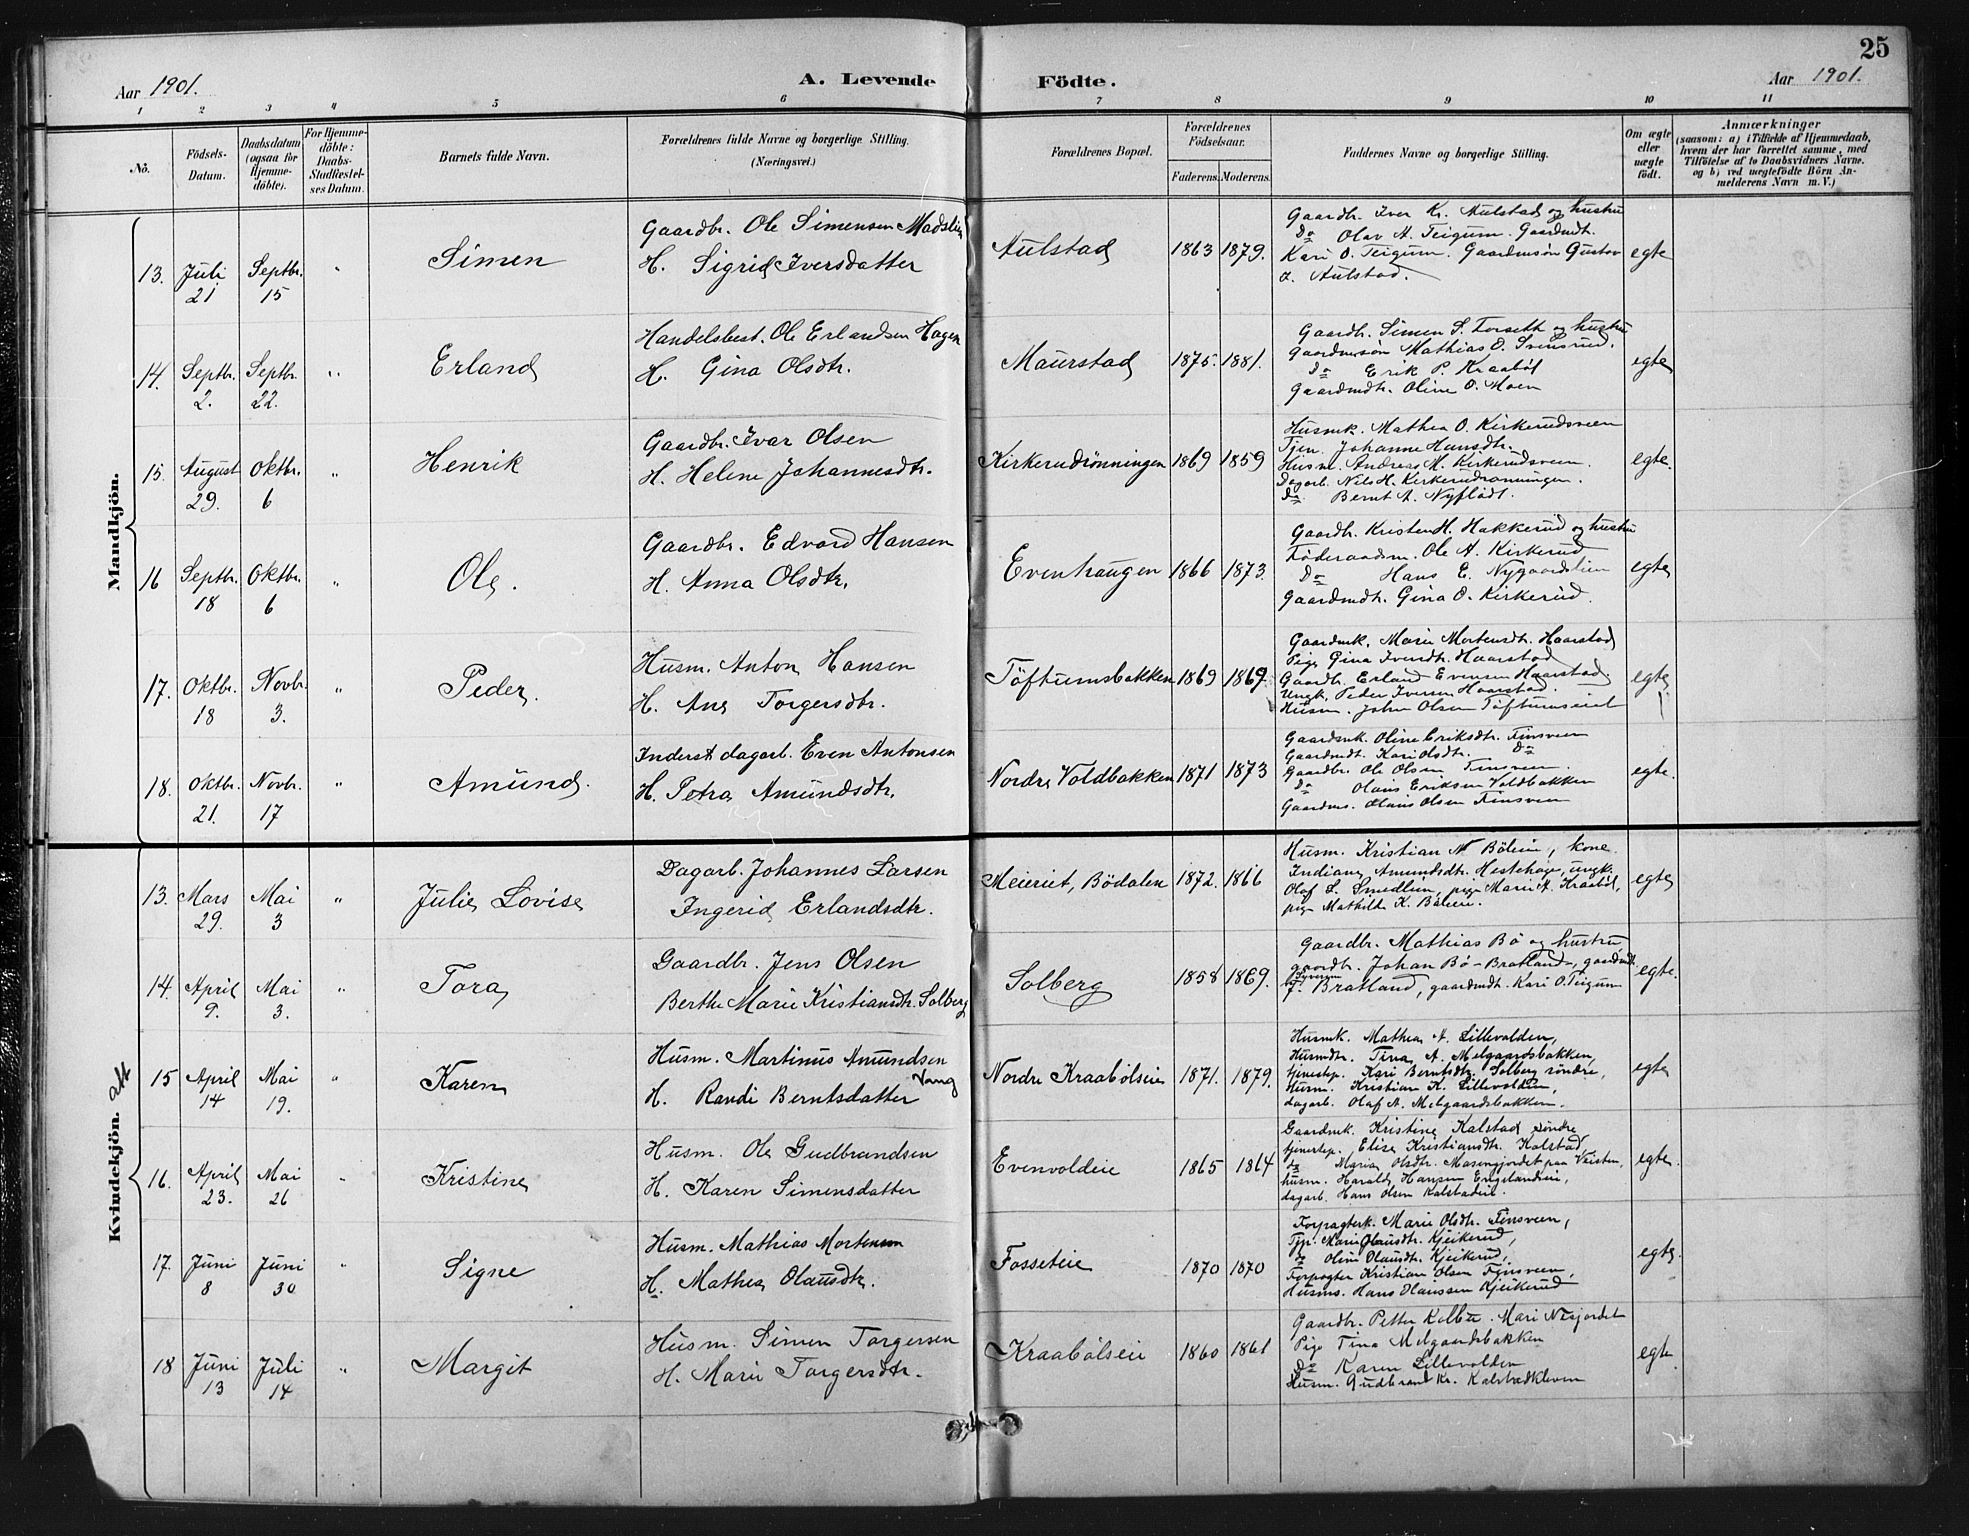 25
Aar 1901.
A. Levende Födte.
Aar 1901.
1 2 3 4 5 6 7 8 9 10 11
No.
Födsels-Datum.
Daabsdatum (ogsaa for Hjemme-döbte).
For Hjemme-döbte: Daabs-Stadfæstel-ses Datum.
Barnets fulde Navn.
Forældrenes fulde Navne og borgerlige Stilling. (Næringsvei.)
Forældrenes Bopæl.
Forældrenes Födselsaar.
Faderens. Moderens.
Faddernes Navne og borgerlige Stilling.
Om ægte eller uægte födt.
Anmærkninger
(saasom: a) i Tilfælde af Hjemmedaab, hvem der har forrettet samme, med Tilföielse af to Daabsvidners Navne, og b) ved uægtefödte Börn An-melderens Navn m. V.)
Mandkjön.
13. Juli 21 Septbr. 15 " Simen
Gaardbr. Ole Simensen Madslien
H. Sigrid Iversdatter
Aulstad 1863 1879.
Gaardbr. Iver Kr. Aulstad og hustru
Do Olav A. Teigum. Gaardmdt.
Kari O. Teigum. Gaardmsøn Gustav
I. Aulstad.
egte
14. Septbr. 2. Septbr. 22. " Erland
Handelsbest. Ole Erlandsen Hagen
H. Gina Olsdtr.
Maurstad 1875. 1881.
Gaardbr. Simen S. Forseth og hustru
Gaardmsøn Mathias O. Svensrud.
Do Erik P. Kraabøl
Gaardmdtr. Oline O. Moen
egte
15. August 29. Oktbr. 6 " Henrik
Gaardbr. Ivar Olsen
H. Helene Johannesdtr.
Kirkerudrönningen 1869 1859
Husmk. Mathea O. Kirkerudsveen
Tjen. Johanne Hansdtr.
Husm. Andreas M. Kirkerudsveen.
Dagarb. Nils H. Kirkerudrønningen.
Do Bernt A. Nyflödt.
egte.
16 Septbr. 18 Oktbr. 6 " Ole.
Gaardbr. Edvard Hansen
H. Anna Olsdtr.
Evenhaugen 1866 1873.
Gaardbr. Kristen H. Hakkerud og hustru
Føderaadsm. Ole A. Kirkerud
Do Hans E. Nygaardslien
Gaardmdtr. Gina O. Kirkerud.
egte
17. Oktbr. 18 Novbr. 3. " Peder.
Husm. Anton Hansen
H. Ane Torgersdtr.
Töftumsbakken 1869 1869.
Gaardmk. Marie Mortensdtr. Haarstad
Pige Gina Iversdtr. Haarstad
Gaardbr. Erland Evensen Haarstad
Ungk. Peder Iversen Haarstad.
Husm. Johan Olsen Töftumseiet
egte
18. Oktbr. 21. Novbr. 17 " Amund.
Inderst dagarb. Even Antonsen
H. Petra Amundsdtr.
Nordre Voldbakken 1871 1873
Gaardmk. Oline Eriksdtr. Finsveen
Gaardmdt. Kari Olsdtr. Do
Gaardbr. Ole Olsen Finsveen.
Do Olaus Eriksen Voldbakken
Gaardms. Olaus Olsen Finsveen
egte.
Kvindekjön. att
13. Mars 29. Mai 3 " Julie Lovise
Dagarb. Johannes Larsen
Ingerid Erlandsdtr.
Meieriet, Bödalen 1872. 1866
Husm. Kristian N Böleie, kone
Indiane Amundsdtr. Hestehage, ungk.
Olaf L. Smedlien, pige Marie A. Kraabøl,
pige Mathilde K. Böleie.
egte
14. April 9. Mai 3. " Tora
Gaardbr. Jens Olsen
Berthe Marie Kristiansdtr. Solberg
Solberg 1858 1869.
Gaardbr. Mathias Bø og hustru,
gaardbr. Johan Bø-Bratland, gaardmdt.
Bratland, gaardmdt. Kari O. Teigum
egte.
15 April 14 Mai 19. " Karen
Husm. Martinus Amundsen Vang
H. Randi Berntsdatter
Nordre Kraabølseie 1871. 1879.
Husmk. Mathea A. Lillevolden,
Husmdtr. Tina A. Melgaardsbakken,
tjenestep. Kari Berntsdtr. Solberg søndre,
Husm. Kristian K. Lillevolden,
dagarb. Olaf A. Melgaardsbakken.
egte
16. April 23. Mai 26 " Kristine
Husm. Ole Gudbrandsen
H. Karen Simensdatter
Evenvoldeie 1865 1864
Gaardmk. Kristine Kalstad søndre
tjenestep. Elise Kristiansdtr. Kalstad
do Marie Olsdtr. Masengjordet paa Vesten,
husm. Harald Hansen Engelandseie,
dagarb. Hans Olsen Kalstadeie.
egte.
17. Juni 8 Juni 30 " Signe
Husm. Mathias Mortensen
H. Mathea Olausdtr.
Fosseteie 1870 1870
Forpagterk. Marie Olsdtr. Finsveen,
Tjp. Marie Olausdtr. Kjeikerud,
do Oline Olausdtr. Kjeikerud,
Forpagter Kristian Olsen Finsveen,
Husms. Hans Olaussen Kjeikerud
egte.
18 Juni 13 Juli 14 " Margit
Husm. Simen Torgersen
H. Marie Torgersdtr.
Kraabølseie 1860 1861
Gaardbr. Petter Kalbu. Mari Nejordet
Pige Tina Melgaardsbakken
Do Karen Lillevolden
Husm. Gudbrand Kr. Kalstadkleven
egte